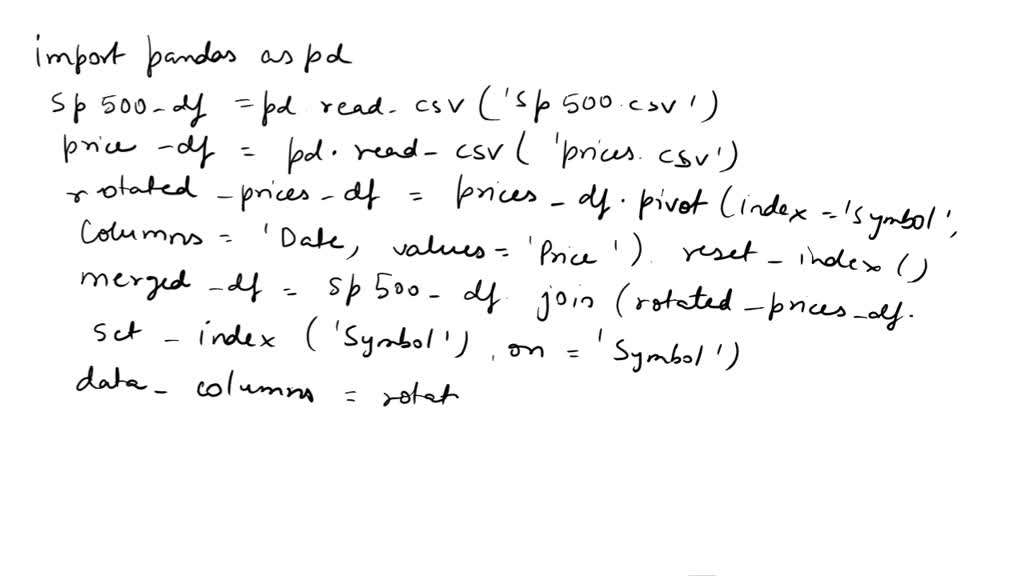 import pandas as pd
sp 500_df = pd read_csv ('sp 500.csv')
price_df = pd. read_csv ('prices.csv')
rotated_prices_df = prices_df. pivot (index = 'Symbol',
Columns = 'Date, values = 'Price'). reset_index ()
merged_df = sp 500_df join (rotated_prices_df.
set_index ('Symbol'), on = 'Symbol')
data_columns = rotat